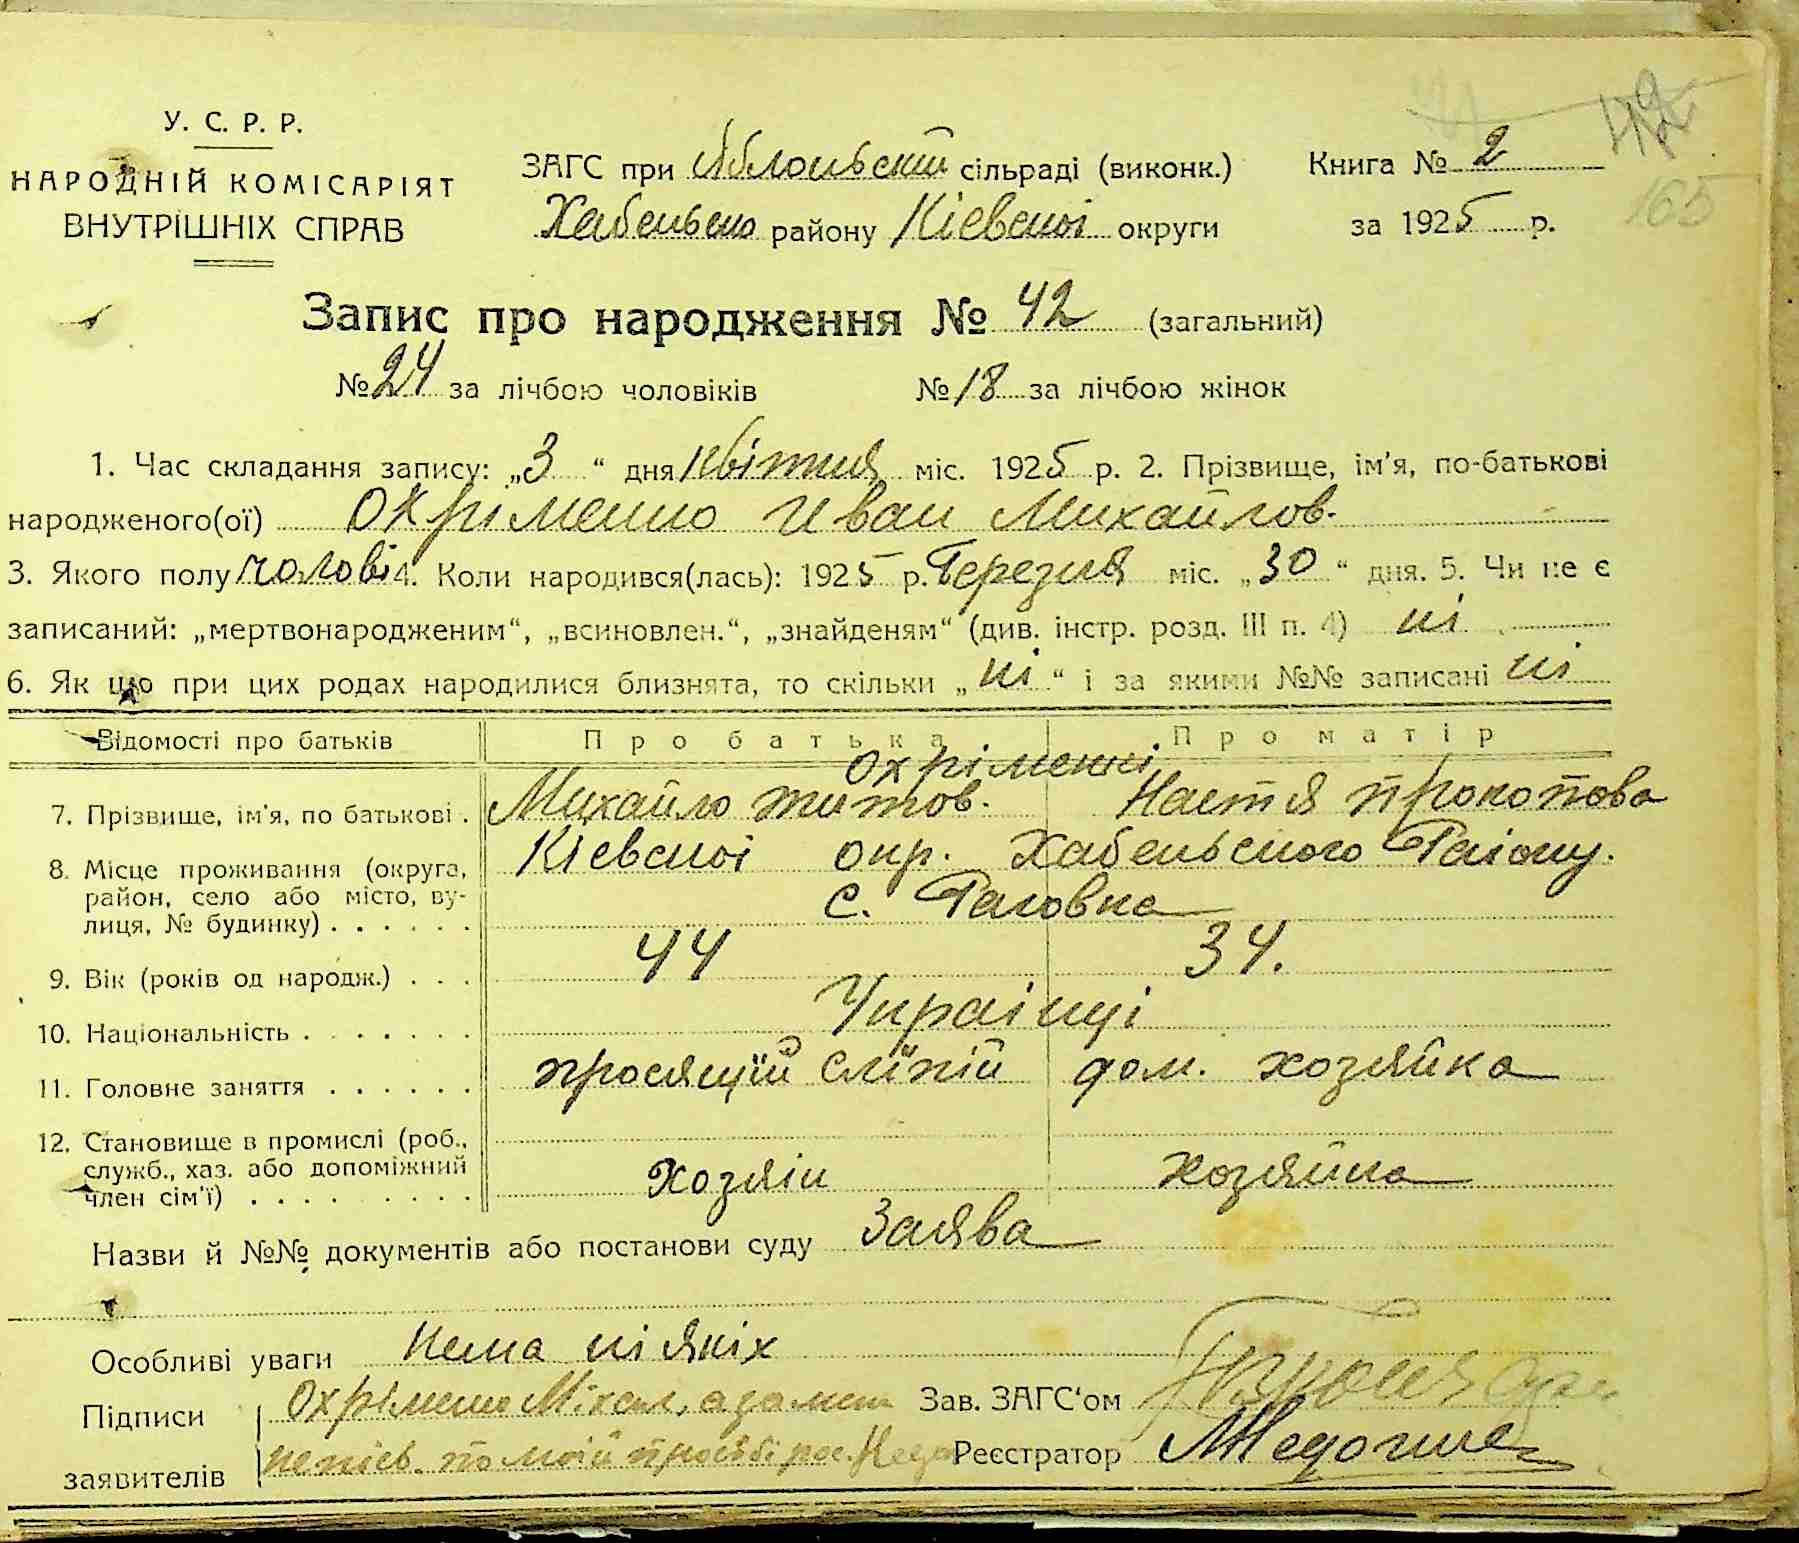 У. С. Р. Р.
НАРОДНІЙ КОМІСАРІЯТ
ВНУТРІШНІХ СПРАВ
ЗАГС при Яблонській сільраді (виконк.)
Хабенько району Кіевскоі округи
Книга № 2
за 1925 р.
42
165
Запис про народження № 42 (загальний)
№ 24 за лічбою чоловіків № 18 за лічбою жінок
1. Час складання запису: „3“ дня квітня міс. 1925 р. 2. Прізвище, ім'я, по-батькові
народженого(ої) Охріменко Иван Михайлов.
3. Якого полу чолові 4. Коли народився(лась): 1925 р. Березня міс. „30“ дня. 5. Чи не є
записаний: „мертвонародженим“, „всиновлен.“, „знайденям“ (див. інстр. розд. III п. 4) ні
6. Як що при цих родах народилися близнята, то скільки „ні“ і за якими №№ записані ні
Відомості про батьків Про батька Про матір
Охріменкі
7. Прізвище, ім'я, по батькові . Михайло титов. Настя прокопова
8. Місце проживання (округа, Кіевскоі окр. Хабенського Раіону.
район, село або місто, ву- с. Раговка
лиця, № будинку) . . . . . .
9. Вік (років од народж.) . . . 44 34.
10. Національність . . . . . . . Украінці
11. Головне заняття . . . . . . просящій сліпій дом. хозяйка
12. Становище в промислі (роб.,
служб., хаз. або допоміжний Хозяін Хозяйка
член сім'ї) . . . . . . . . .
Назви й №№ документів або постанови суду Заява
Особливі уваги нема ніякіх
Підписи Охріменко Міхал, а за Зав. ЗАГС'ом
заявителів по моій просьбі рос. Реєстратор